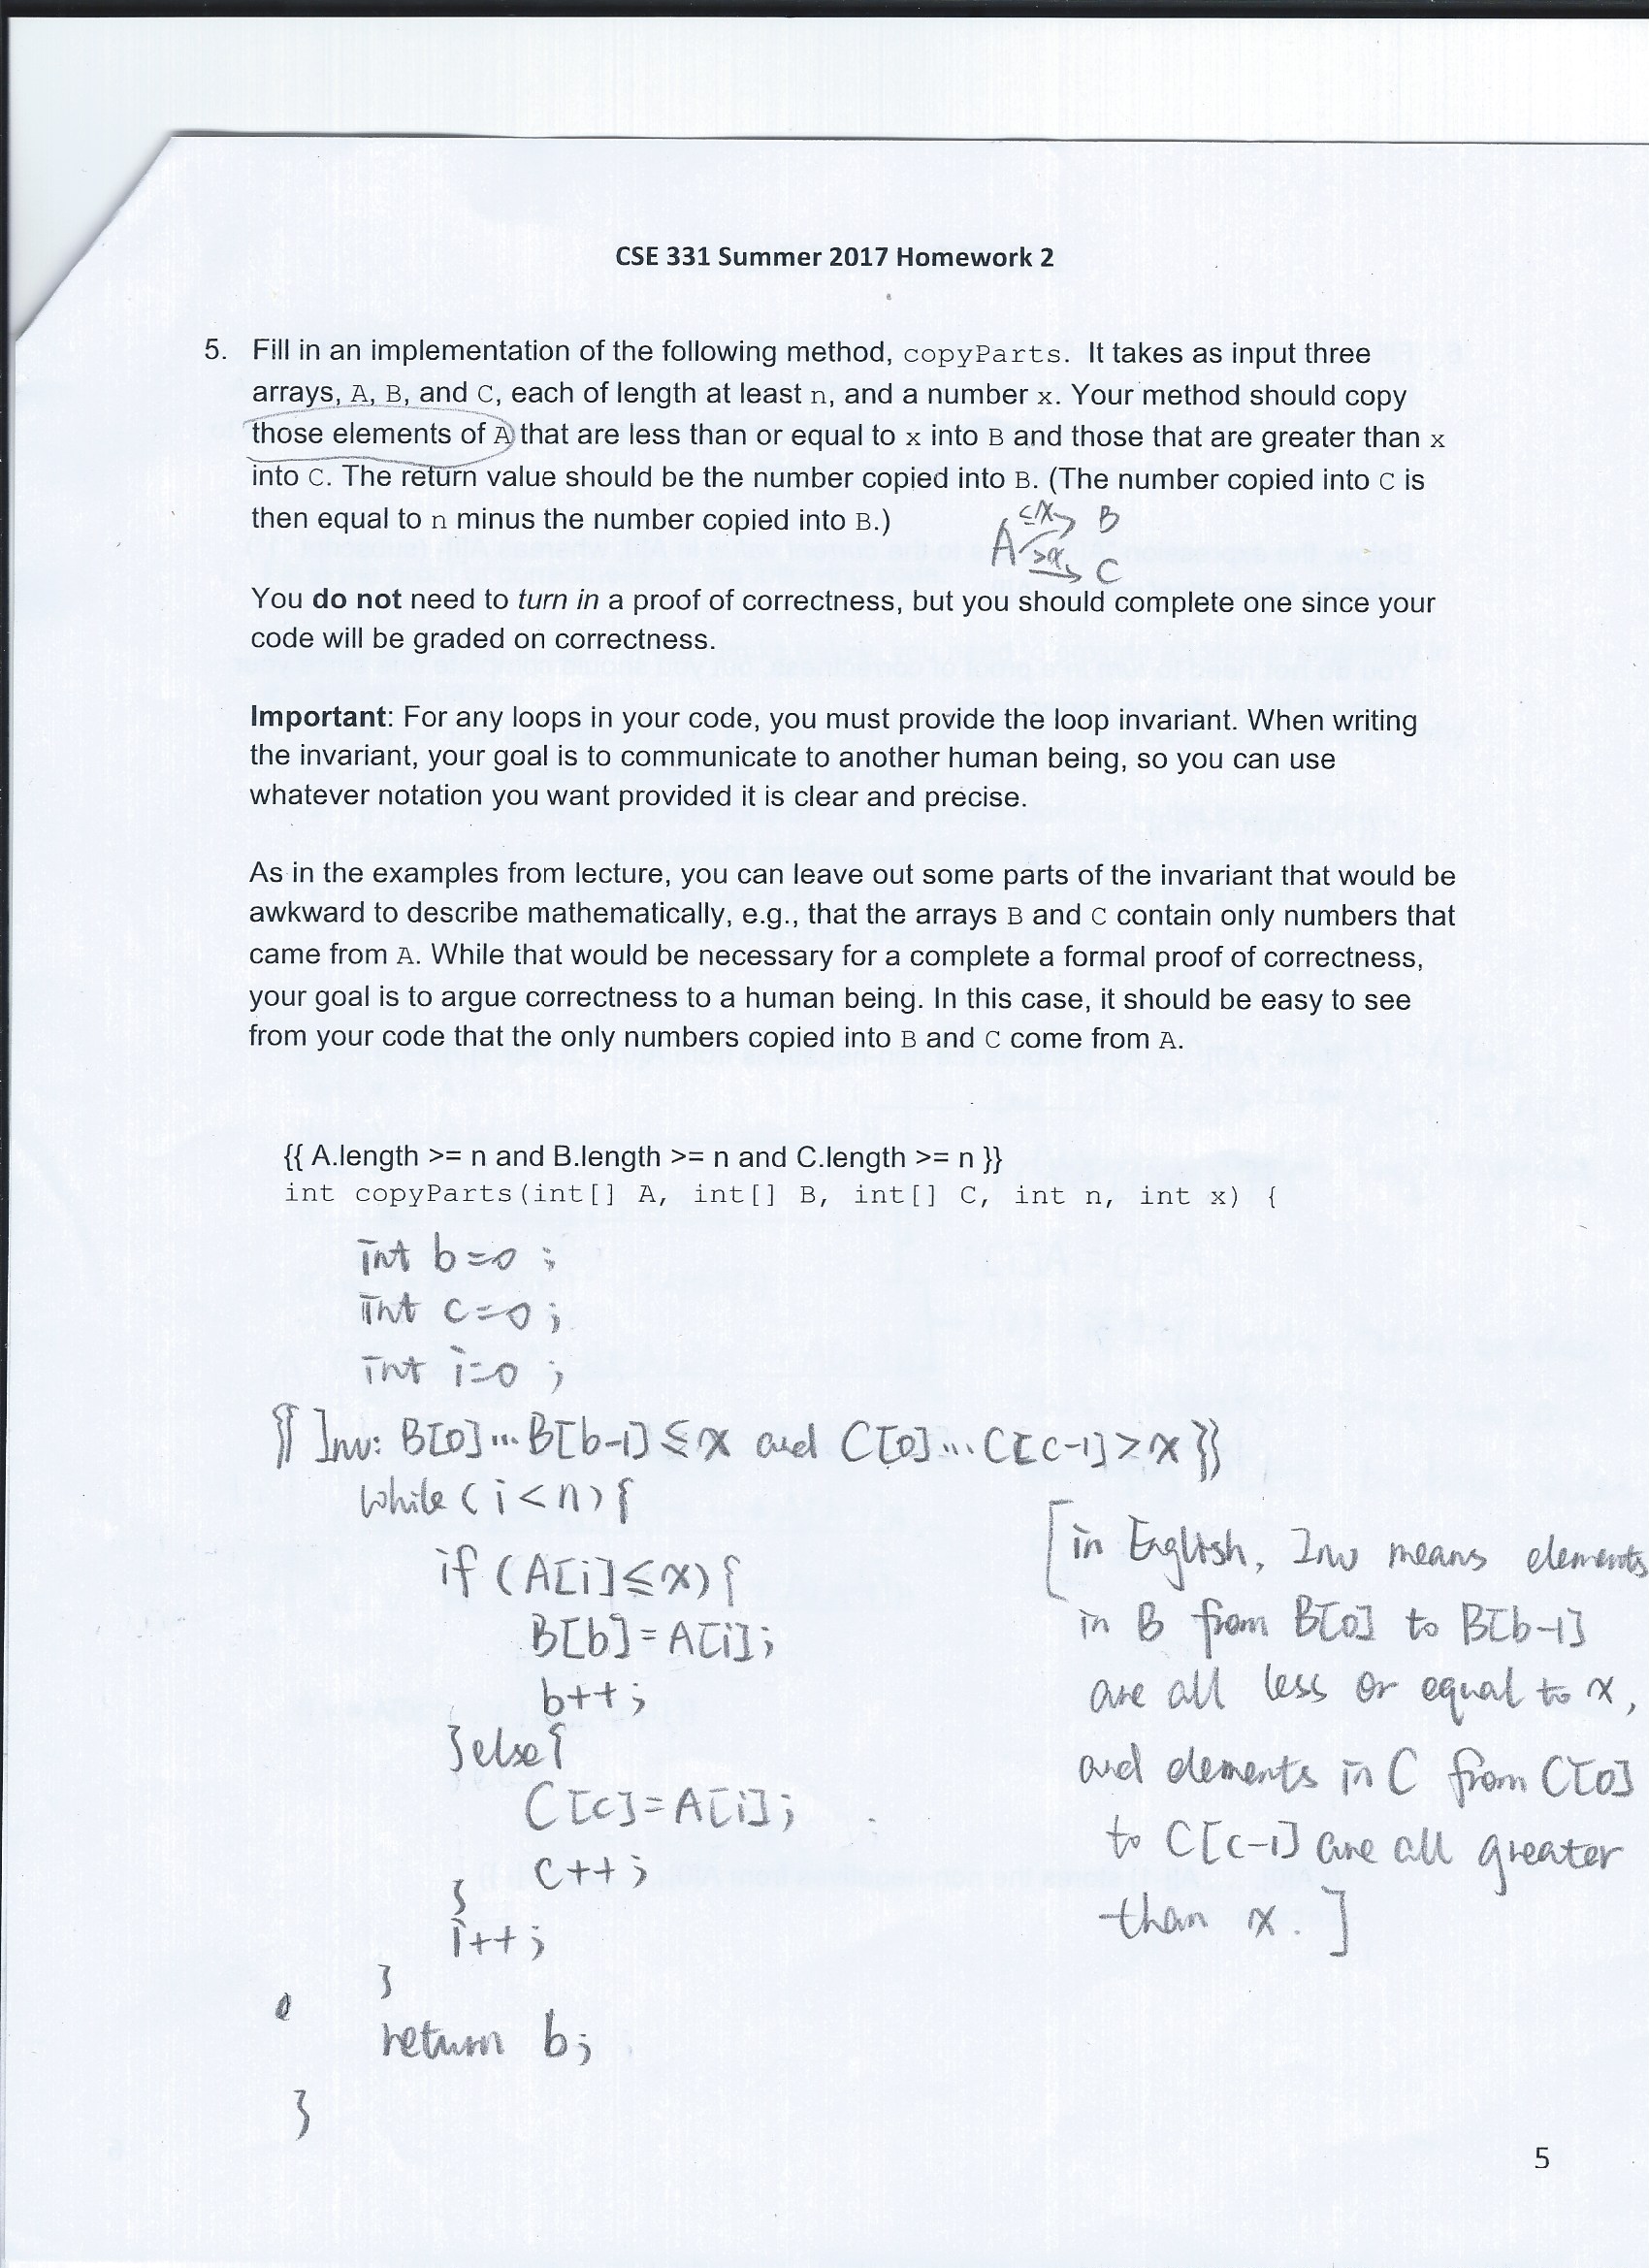 CSE 331 Summer 2017 Homework 2
5. Fill in an implementation of the following method, copyParts. It takes as input three
arrays, A, B, and C, each of length at least n, and a number x. Your method should copy
those elements of A that are less than or equal to x into B and those that are greater than x
into C. The return value should be the number copied into B. (The number copied into C is
then equal to n minus the number copied into B.)
≤x B
A >x C
You do not need to turn in a proof of correctness, but you should complete one since your
code will be graded on correctness.
Important: For any loops in your code, you must provide the loop invariant. When writing
the invariant, your goal is to communicate to another human being, so you can use
whatever notation you want provided it is clear and precise.
As in the examples from lecture, you can leave out some parts of the invariant that would be
awkward to describe mathematically, e.g., that the arrays B and C contain only numbers that
came from A. While that would be necessary for a complete a formal proof of correctness,
your goal is to argue correctness to a human being. In this case, it should be easy to see
from your code that the only numbers copied into B and C come from A.
{{ A.length >= n and B.length >= n and C.length >= n }}
int copyParts(int[] A, int[] B, int[] C, int n, int x) {
int b=0;
int c=0;
int i=0;
{{ Inv: B[0]...B[b-1]≤x and C[0]...C[c-1]>x }}
while (i<n){
if (A[i]≤x){
B[b]=A[i];
b++;
}else{
C[c]=A[i];
c++;
}
i++;
}
return b;
}
[in English, Inv means elements
in B from B[0] to B[b-1]
are all less or equal to x,
and elements in C from C[0]
to C[c-1] are all greater
than x.]
5